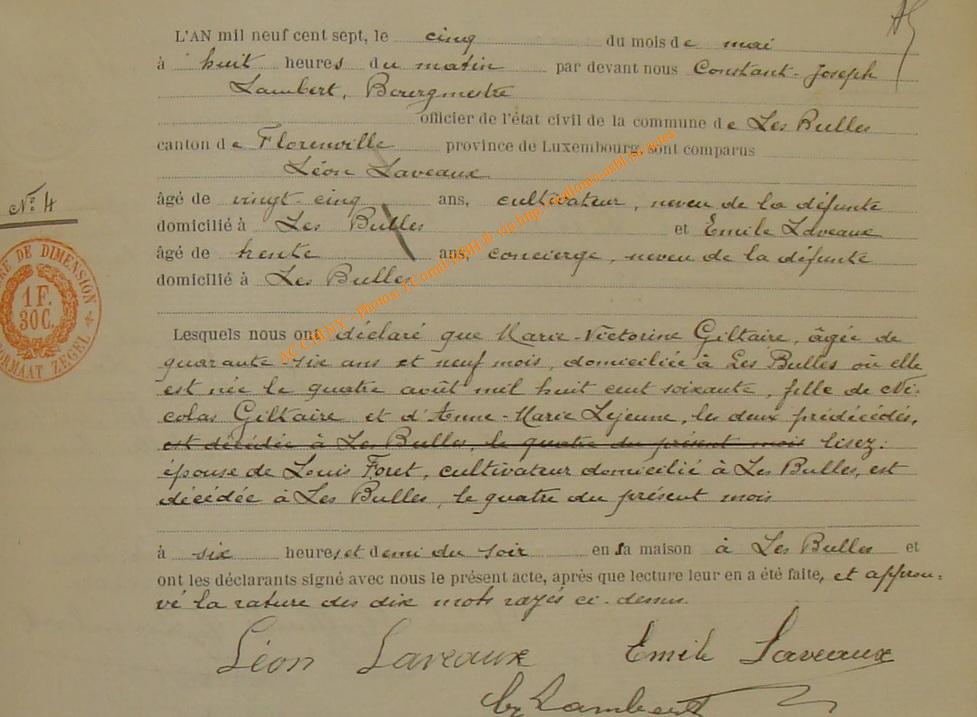 L'AN mil neuf cent sept, le cinq du mois de mai
à huit heures du matin par devant nous Constant-Joseph
Lambert, Bourgmestre
officier de l'état civil de la commune de Les Bulles
canton de Florenville province de Luxembourg, sont comparus
Léon Laveaux
âgé de vingt-cinq ans, cultivateur, neveu de la défunte
domicilié à Les Bulles et Emile Laveaux
âgé de trente ans, concierge, neveu de la défunte
domicilié à Les Bulles
Lesquels nous ont déclaré que Marie-Victorine Giltaire, âgée de
quarante-six ans et neuf mois, domiciliée à Les Bulles où elle
est née le quatre août mil huit cent soixante, fille de Ni-
colas Giltaire et d'Anne-Marie Lejeune, les deux prédécédés,
est décédée à Les Bulles, le quatre du présent mois lisez:
épouse de Louis Foret, cultivateur domicilié à Les Bulles, est
décédée à Les Bulles, le quatre du présent mois
à six heures et demi du soir en sa maison à Les Bulles et
ont les déclarants signé avec nous le présent acte, après que lecture leur en a été faite, et approu-
vé la rature des dix mots rayés ci-dessus.
Léon Laveaux Emile Laveaux
Lambert
N° 4
DE DIMENSION
1 F.
30 C.
ZEGEL